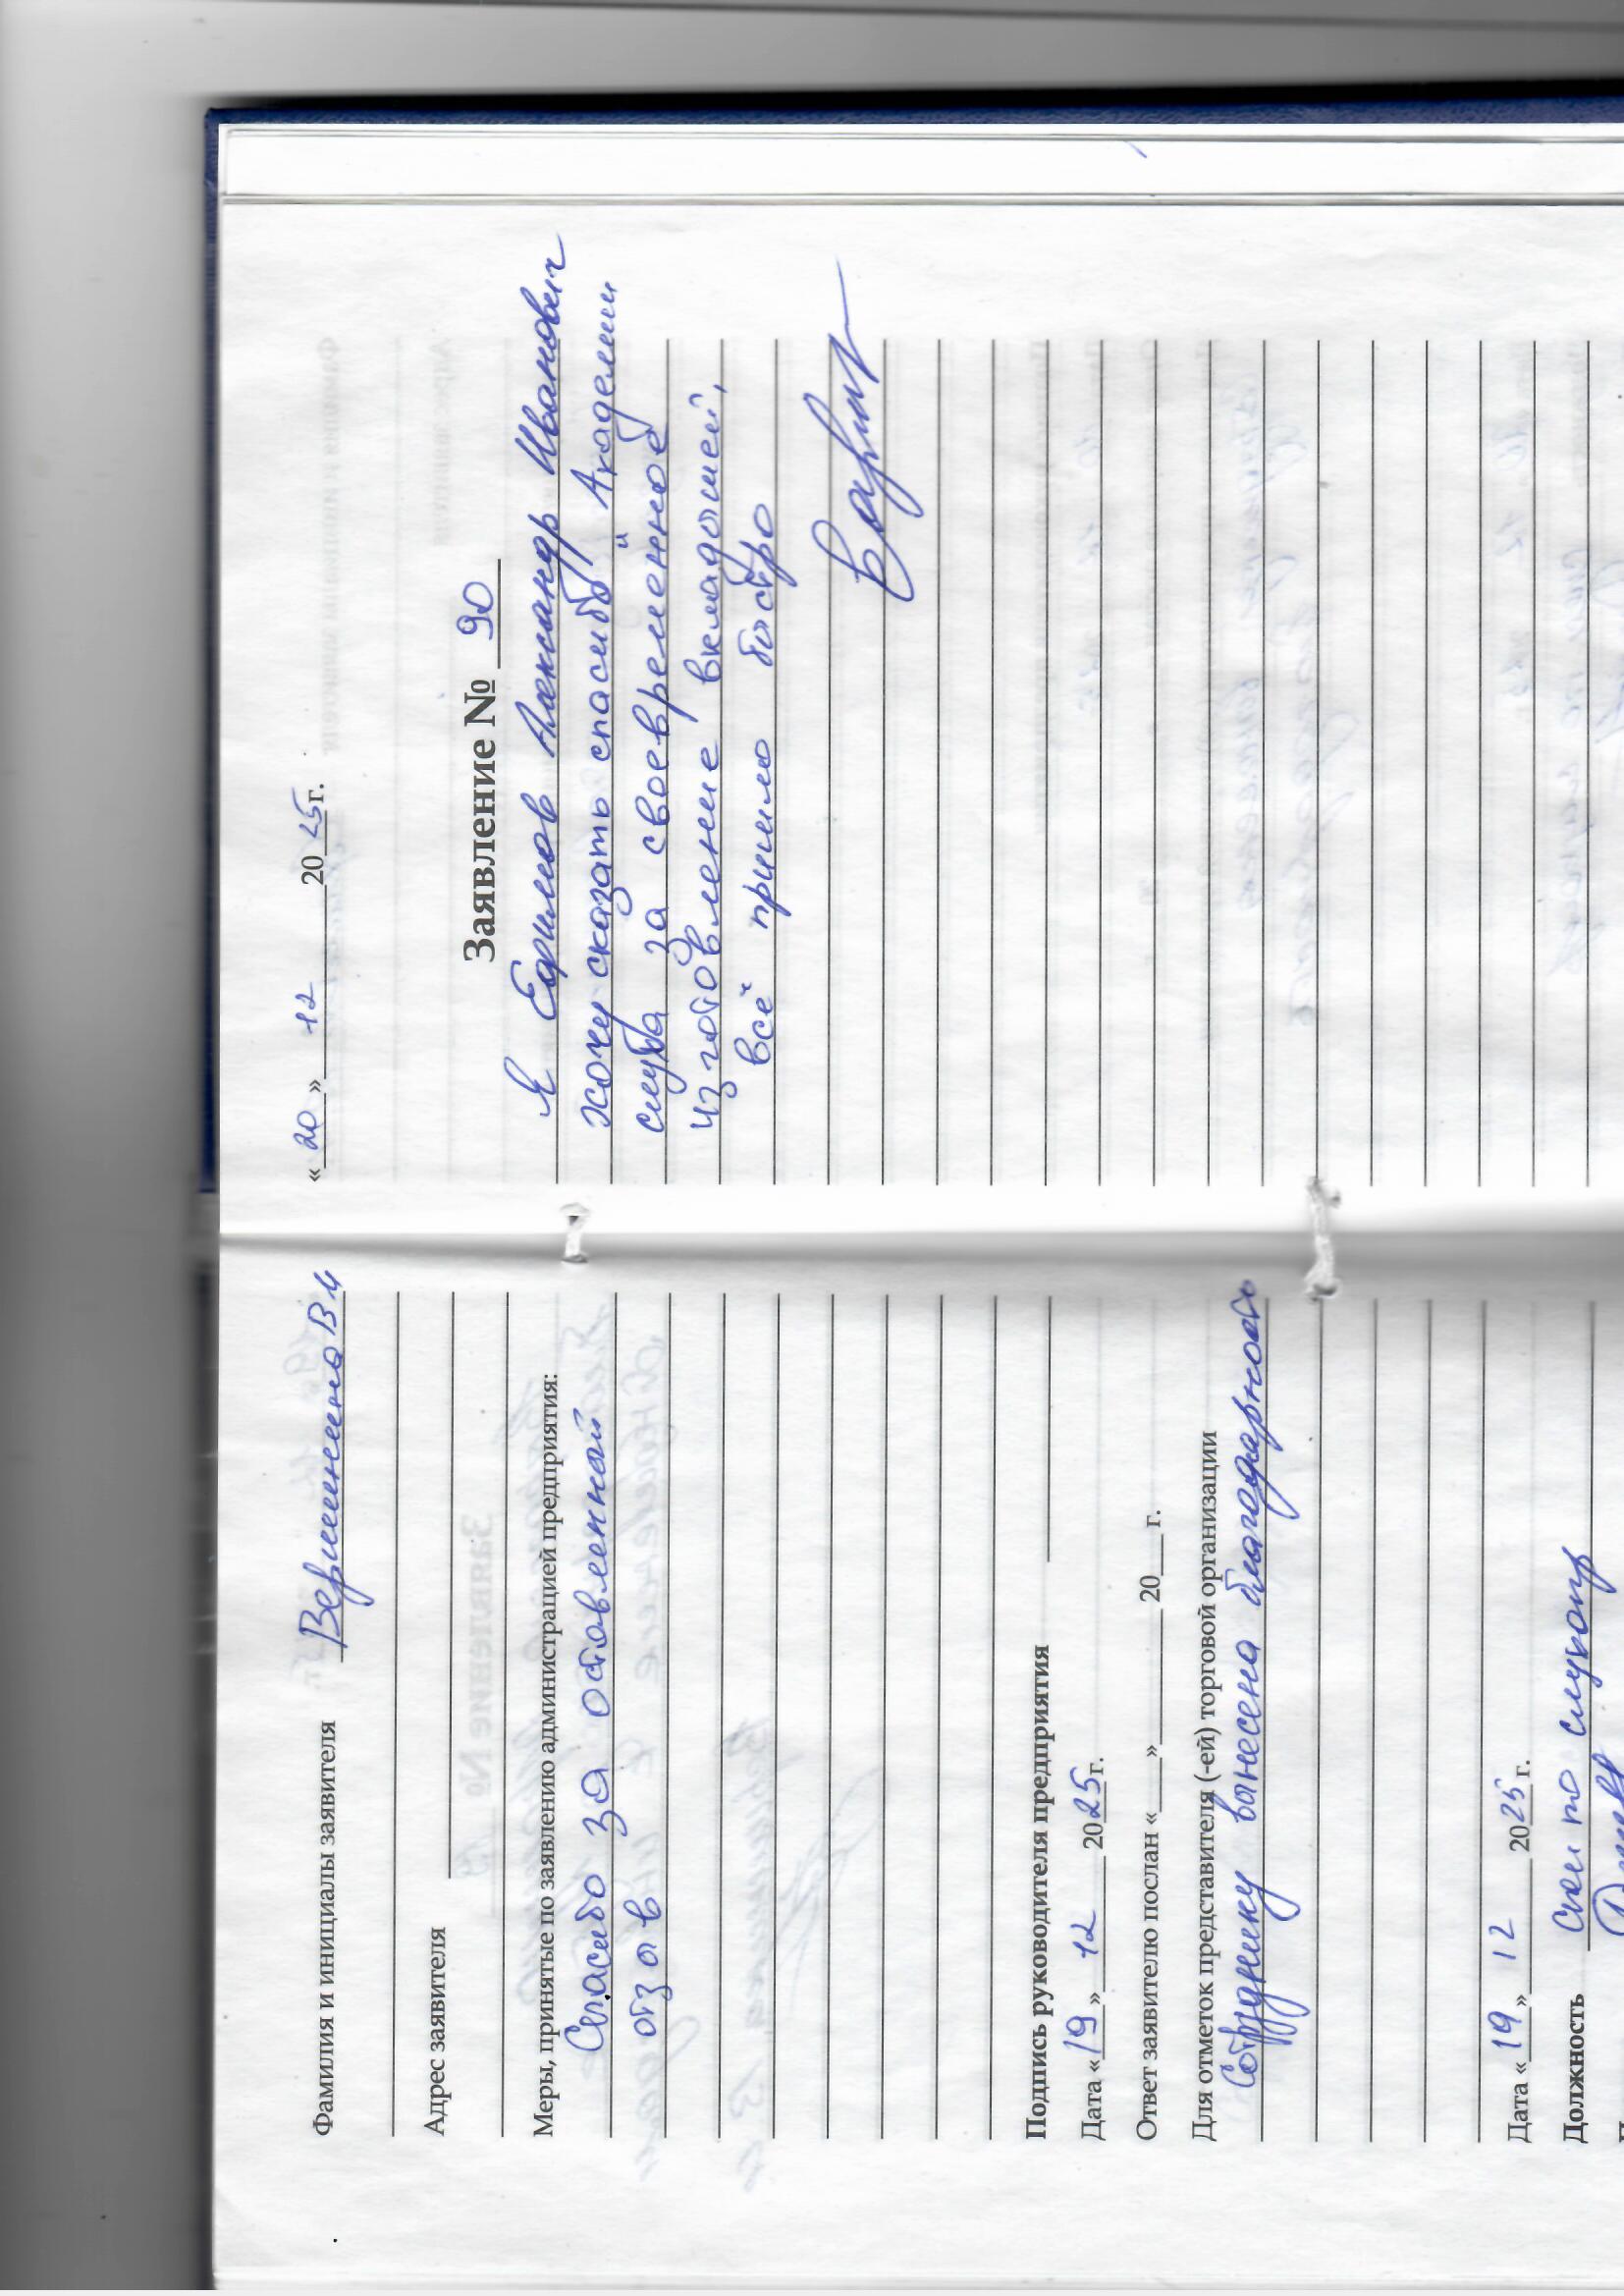 Фамилия и инициалы заявителя Вершинина В И
Адрес заявителя
Меры, принятые по заявлению администрацией предприятия:
Спасибо за оставленный
отзыв
Подпись руководителя предприятия
Дата «19» 12 2025г.
Ответ заявителю послан «___»________20___г.
Для отметок представителя (-ей) торговой организации
Сотруднику вынесена благодарность
Дата «19» 12 2025г.
Должность Спец по слухопр
«20» 12 2025г.
Заявление № 90
Я Ефимов Александр Иванович
хочу сказать спасибо Академии
слуха за своевременное
изготовление вкладышей,
всё пришло быстро